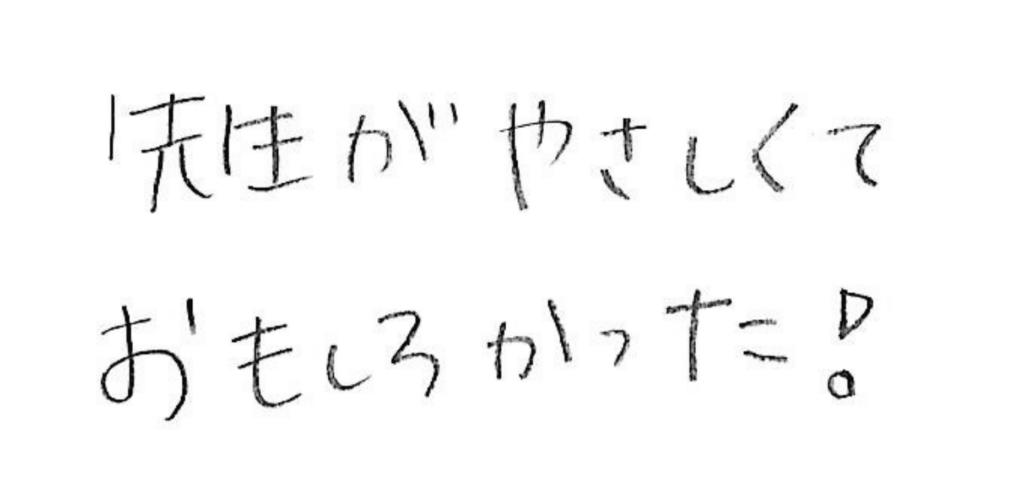 先生がやさしくて
おもしろかった!